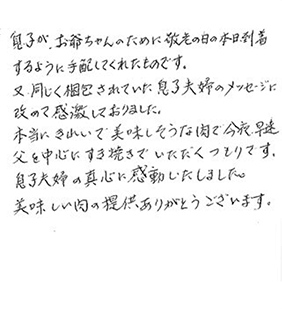 息子が、お爺ちゃんのために敬老の日の本日到着
するように手配してくれたものです。
又、同じく梱包されていた息子夫婦のメッセージに
改めて感激しておりました。
本当にきれいで美味しそうな肉で今夜、早速
父を中心にすき焼きでいただくつもりです。
息子夫婦の真心に感動いたしました。
美味しい肉の提供ありがとうございます。